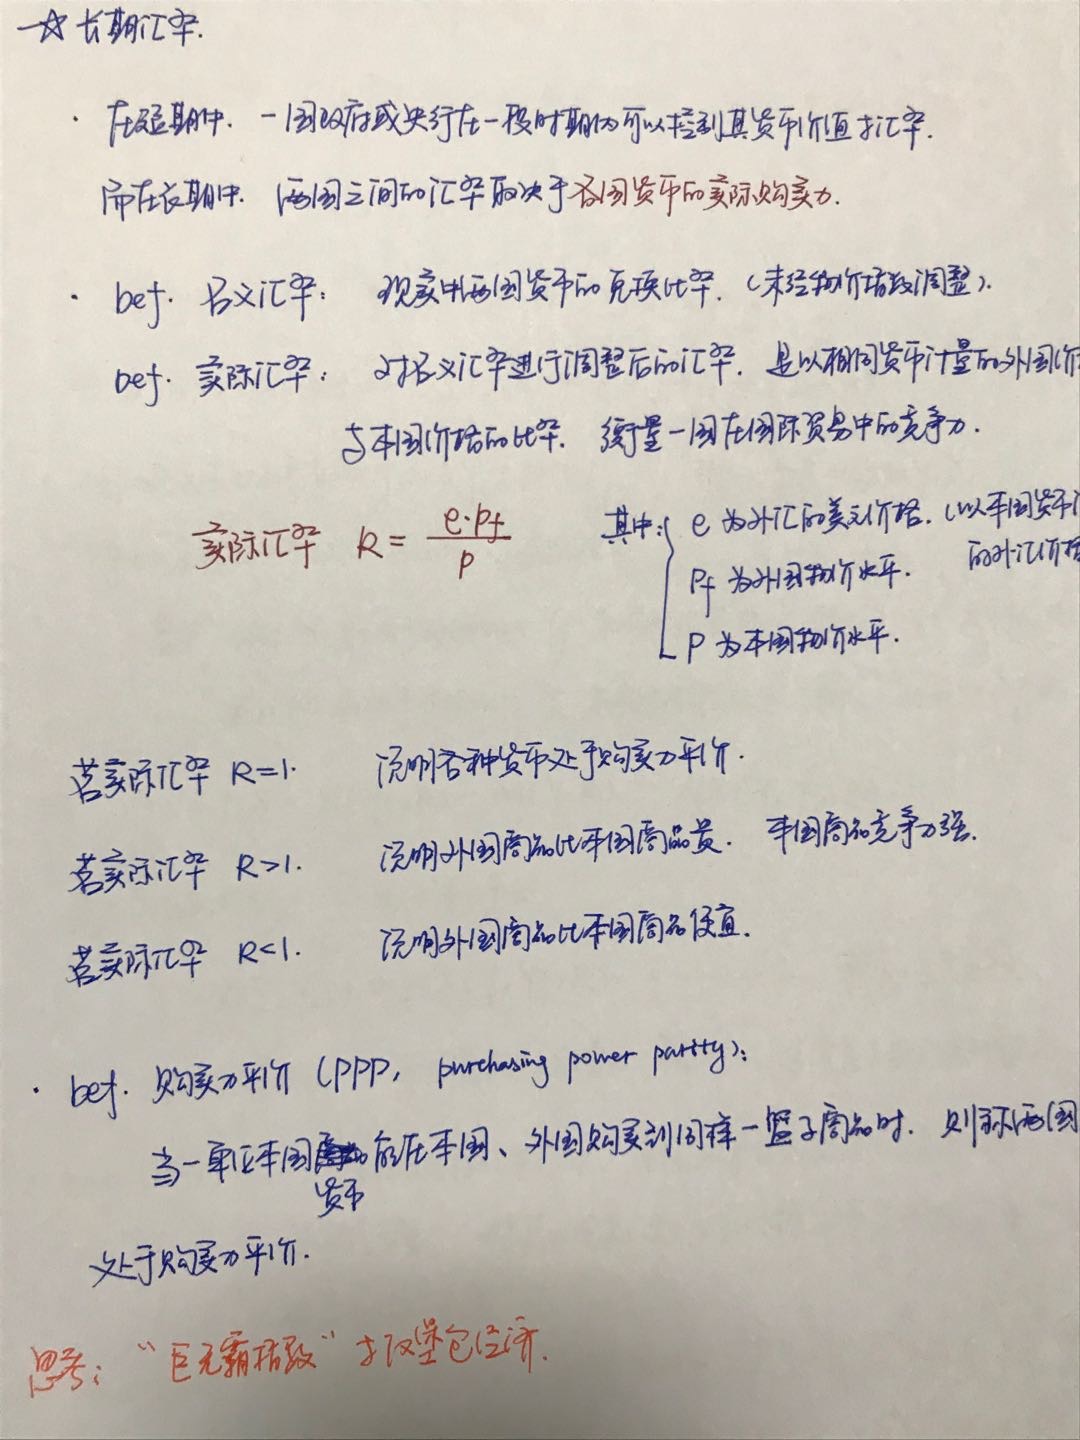 ☆ 长期汇率.
· 在短期中. 一国政府或央行在一段时期内可以控制其货币价值与汇率.
而在长期中. 两国之间的汇率取决于各国货币的实际购买力.
· def. 名义汇率: 现实中两国货币的兑换比率. (未经物价指数调整).
def. 实际汇率: 对名义汇率进行调整后的汇率. 是以相同货币计量的外国价
与本国价格的比率. 衡量一国在国际贸易中的竞争力.
实际汇率 R = e·Pf / P
其中: e 为外汇的美元价格. (以本国货币
的外汇价格
Pf 为外国物价水平.
P 为本国物价水平.
若实际汇率 R=1. 说明各种货币处于购买力平价.
若实际汇率 R>1. 说明外国商品比本国商品贵. 本国商品竞争力强.
若实际汇率 R<1. 说明外国商品比本国商品便宜.
· def. 购买力平价 (PPP, purchasing power parity):
当一单位本国货币能在本国、外国购买到同样一篮子商品时. 则称两国
处于购买力平价.
思考: "巨无霸指数" 与汉堡包经济.